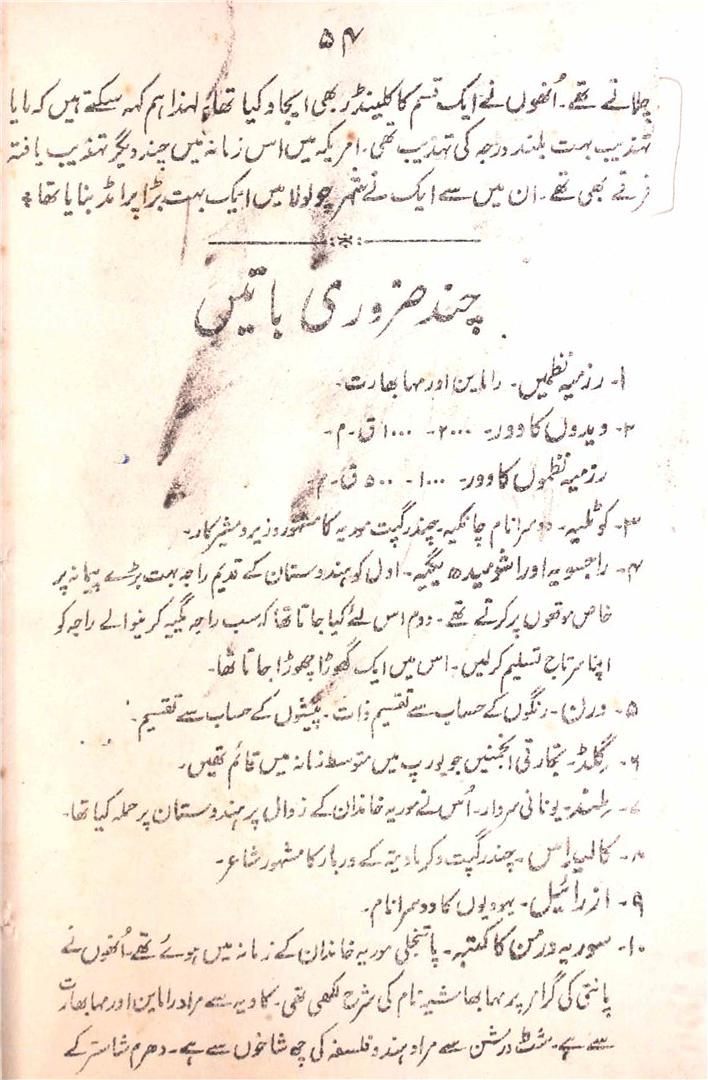 ۵۴
چلاتے تھے۔ اُنھوں نے ایک قسم کا کلینڈر بھی ایجاد کیا تھا۔ لہٰذا ہم کہہ سکتے ہیں کہ مایا
تہذیب بہت بلند درجہ کی تہذیب تھی۔ امریکہ میں اس زمانہ میں چند دیگر تہذیب یافتہ
فرقے بھی تھے۔ ان میں سے ایک نے شہر چولولا میں ایک بہت بڑا پرامڈ بنایا تھا ٭
چند ضروری باتیں
۱۔ رزمیہ نظمیں۔ رامائن اور مہا بھارت۔
۲۔ ویدوں کا دور۔ ۲۰۰۰۔ ۱۰۰۰ ق۔م۔
رزمیہ نظموں کا دور۔ ۱۰۰۰۔ ۵۰۰ ق۔م۔
۳۔ کوٹلیہ۔ دوسرا نام چانکیہ۔ چندر گپت موریہ کا مشہور وزیر و مشیر کار۔
۴۔ راجسویہ اور اشومیدھ یگیہ۔ اول کو ہندوستان کے قدیم راجہ بہت بڑے پیمانہ پر
خاص موقعوں پر کرتے تھے۔ دوم اس لئے کیا جاتا تھا کہ سب راجہ یگیہ کرنیوالے راجہ کو
اپنا سرتاج تسلیم کرلیں۔ اس میں ایک گھوڑا چھوڑا جاتا تھا۔
۵۔ ورن۔ رنگوں کے حساب سے تقسیم ذات۔ پیشوں کے حساب سے تقسیم۔
۶۔ گِلڈ۔ تجارتی انجمنیں جو یورپ میں متوسط زمانہ میں قائم تھیں۔
۷۔ مِلند۔ یونانی سردار۔ اُس نے موریہ خاندان کے زوال پر ہندوستان پر حملہ کیا تھا۔
۸۔ کالیداس۔ چندر گپت وکرمادتیہ کے دربار کا مشہور شاعر۔
۹۔ ازرائیل۔ یہودیوں کا دوسرا نام۔
۱۰۔ سوریہ ورمن کا کتبہ۔ پاتنجلی موریہ خاندان کے زمانہ میں ہوئے تھے۔ اُنھوں نے
پاننی کی گرامر پر مہا بھاشیہ نام کی شرح لکھی تھی۔ کاویہ سے مراد رامائن اور مہا بھارت
سے ہے۔ شٹ درشن سے مراد ہندو فلسفہ کی چھ شاخوں سے ہے۔ دھرم شاستر کے